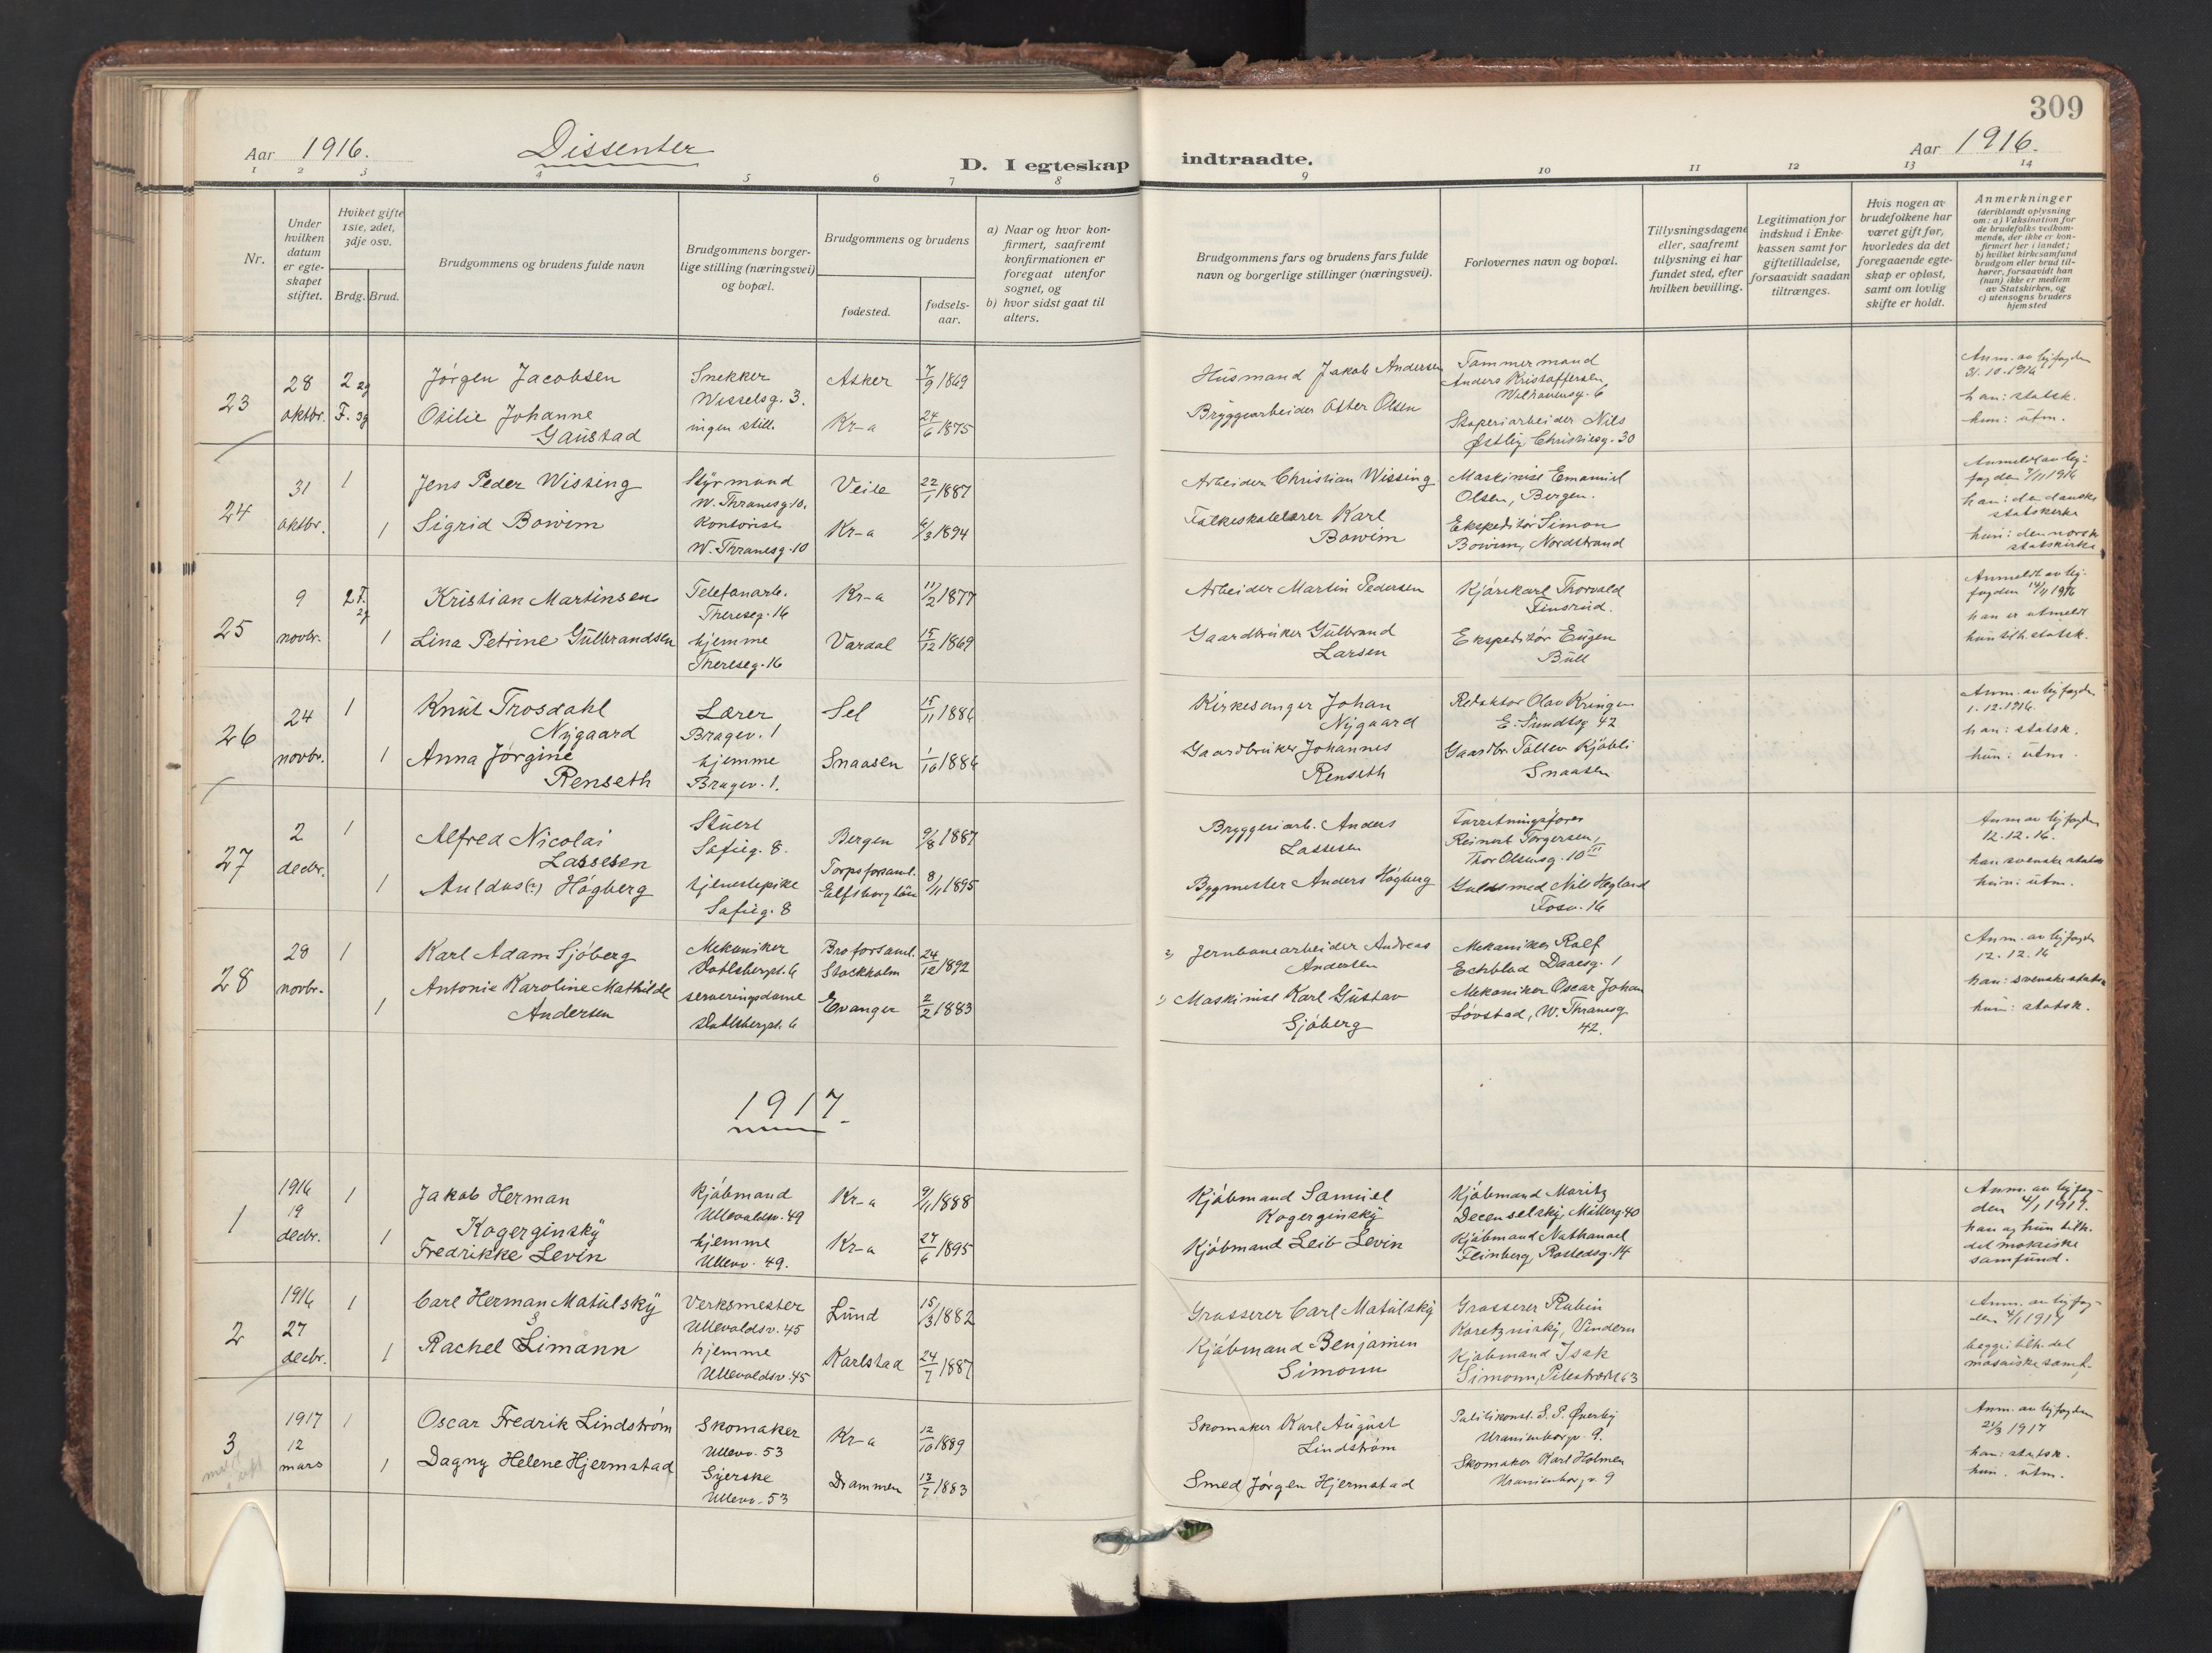 309
Aar 1916.
Dissenter
D. I egteskap indtraadte.
Aar 1916.
1 2 3 4 5 6 7 8 9 10 11 12 13 14
Nr.
Under
hvilken
datum
er egte-
skapet
stiftet.
Hviket gifte
1ste, 2det,
3dje osv.
Brdg.
Brud.
Brudgommens og brudens fulde navn
Brudgommens borger-
lige stilling (næringsvei)
og bopæl.
Brudgommens og brudens
fødested.
fødsels-
aar.
a) Naar og hvor kon-
firmert, saafremt
konfirmationen er
foregaat utenfor
sognet, og
b) hvor sidst gaat til
alters.
Brudgommens fars og brudens fars fulde
navn og borgerlige stillinger (næringsvei).
Forlovernes navn og bopæl.
Tillysningsdagene
eller, saafremt
tillysning ei har
fundet sted, efter
hvilken bevilling.
Legitimation for
indskud i Enke-
kassen samt for
giftetilladelse,
forsaavidt saadan
tiltrænges.
Hvis nogen av
brudefolkene har
været gift før,
hvorledes da det
foregaaende egte-
skap er opløst,
samt om lovlig
skifte er holdt.
Anmerkninger
(deriblandt oplysning
om: a) Vaksination for
de brudefolks vedkom-
mende, der ikke er kon-
firmert her i landet;
b) hvilket kirkesamfund
brudgom eller brud til-
hører, forsaavidt han
(hun) ikke er medlem
av Statskirken, og
c) utensogns bruders
hjemsted
23
28
oktbr.
2 2g
F. 3g
Jørgen Jacobsen
Otilie Johanne
Gaustad
Snekker
Wesselsg. 3.
ingen still.
Asker
Kr-a
7/9 1869
24/6 1875
Husmand Jakob Andersen
Bryggearbeider Otter Olsen
Tømmermand
Anders Kristoffersen
Støperiarbeider Nils
Østby, Christiesg. 30
Anm. av byfogden
31.10.1916
han: statsk.
hun: utm.
24
31
oktbr.
1
1
Jens Peder Wissing
Sigrid Bowim
Styrmand
W. Thranesg 10.
Kontorist
W. Thranesg. 10
Veile
Kr-a
22/1 1887
6/3 1894
Arbeider Christian Wissing
Folkeskolelærer Karl
Bowim
Maskinist Emanuel
Olsen, Bergen.
Ekspeditør Simon
Bowim, Nordstrand
Anmeldt av by-
fogden 7/11 1916
han: den danske
statskirke
hun: den norske
statskirke
25
9
novbr.
2 F.
2g
1
Kristian Martinsen
Lina Petrine Gulbrandsen
Telefonarb.
Thereseg. 16
hjemme
Thereseg. 16
Kr-a
Vardal
11/2 1877
15/12 1869
Arbeider Martin Pedersen
Gaardbruker Gulbrand
Larsen
Kjørekarl Thorvald
Finsrud.
Ekspeditør Eugen
Bull
Anmeldt av by-
fogden 14/11 1916
han er utmeldt
hun tilh. statsk.
26
24
novbr.
1
1
Knut Trosdahl
Nygaard
Anna Jørgine
Renseth
Lærer
Bragev. 1
hjemme
Bragev. 1.
Sel
Snaasen
15/11 1886
1/10 1886
Kirkesanger Johan
Nygaard
Gaardbruker Johannes
Renseth
Redaktør Olav Kringen
E. Sundtsg. 42
Gaardbr. Tollev Kjøbli
Snaasen
Anm. av byfogden
1.12.1916.
han: statsk.
hun: utm.
27
2
decbr.
1
1
Alfred Nicolai
Lassesen
Auldus(?) Högberg
Stuert
Sofieg. 8.
tjenestepike
Sofieg. 8
Bergen
Torps forsaml.
Elfsborg län
9/8 1887
8/11 1895
Bryggeriarb. Anders
Lassesen
Bygmester Anders Högberg
Forretningsfører
Reinert Torgersen,
Thor Olsensg. 10 III
Guldsmed Nils Hegland
Fosv. 16
Anm av byfogden
12.12.16.
han svenske statsk
hun: utm.
28
28
novbr.
1
1
Karl Adam Sjöberg
Antonie Karoline Mathilde
Andersen
Mekaniker
Dahlsbergst. 6
serveringsdame
Dahlsbergst. 6
Bro forsaml.
Stockholm
Evanger
24/12 1892
2/2 1883
2) Jernbanearbeider Andreas
Andersen
1) Maskinist Karl Gustav
Sjöberg
Mekaniker Rolf
Echblad Daaesg. 1
Mekaniker Oscar Johan
Løvstad, W. Thranesg
42.
Anm. av byfogden
12.12.16
han: svenske statsk
hun: statsk.
1917.
1
1916
19
decbr.
1
1
Jakob Herman
Kogerginsky
Fredrikke Levin
Kjøbmand
Ullevoldsv. 49
hjemme
Ullevv. 49.
Kr-a
Kr-a
9/11 1888
27/6 1895
Kjøbmand Samuel
Kogerginsky
Kjøbmand Leib Levin
Kjøbmand Moritz
Decenselsky, Møllerg. 40
Kjøbmand Nathanael
Feinberg, Rostedsg. 14
Anm. av byfog-
den 4/1 1917.
han og hun tilh.
det mosaiske
samfund.
2
1916
27
decbr.
1
1
Carl Herman Matulsky
S
Rachel Limann
Verksmester
Ullevoldsv. 45
hjemme
Ullevoldsv. 45
Lund
Karlstad
15/3 1882
24/7 1887
Grosserer Carl Matulsky
Kjøbmand Benjamin
Simonn
Grosserer Rubin
Koretzinsky, Vindern
Kjøbmand Isak
Simonn, Pilestrædet 63
Anm. av byfog-
den 4/1 1917
begge tilh. det
mosaiske samf.
3
1917
12
mars
1
1
Oscar Fredrik Lindstrøm
Dagny Helene Hjermstad
Skomaker
Ullevv. 53
Syerske
Ullevv. 53
Kr-a
Drammen
12/10 1889
13/7 1883
Skomaker Karl August
Lindstrøm
Smed Jørgen Hjermstad
Politikonst. S. P. Øverby
Uranienborgv. 9.
Skomaker Karl Holmen
Uranienborgv. 9
Anm. av byfogden
21/3 1917
han: statsk.
hun. utm.